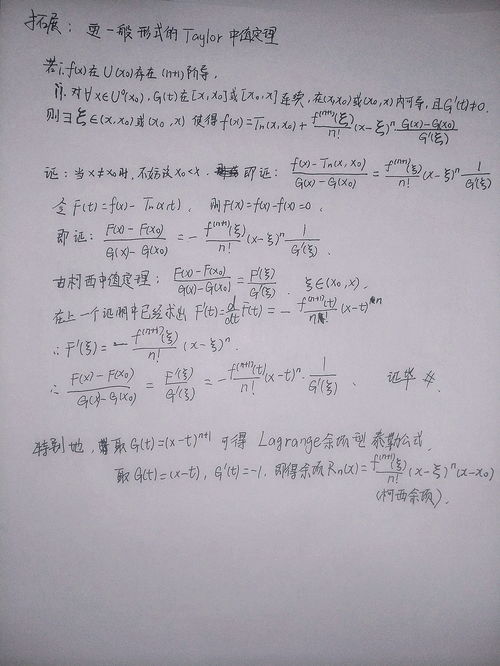 拓展：更一般形式的Taylor中值定理
若i. f(x)在U(x₀)存在(n+1)阶导.
ii. 对∀x∈U°(x₀), G(t)在[x,x₀]或[x₀,x]连续, 在(x,x₀)或(x₀,x)内可导, 且G'(t)≠0.
则∃ξ∈(x,x₀)或(x₀,x) 使得 f(x)=Tn(x,x₀)+f⁽ⁿ⁺¹⁾(ξ)/n! (x-ξ)ⁿ (G(x)-G(x₀))/G'(ξ)
证：当x≠x₀时, 不妨设x₀<x. 即证: (f(x)-Tn(x,x₀))/(G(x)-G(x₀)) = f⁽ⁿ⁺¹⁾(ξ)/n! (x-ξ)ⁿ 1/G'(ξ)
令F(t)=f(x)-Tn(x,t). 则F(x)=f(x)-f(x)=0.
即证: (F(x)-F(x₀))/(G(x)-G(x₀)) = - f⁽ⁿ⁺¹⁾(ξ)/n! (x-ξ)ⁿ 1/G'(ξ).
由柯西中值定理: (F(x)-F(x₀))/(G(x)-G(x₀)) = F'(ξ)/G'(ξ). ξ∈(x₀,x).
在上一个证明中已经求出 F'(t)=d/dt F(t) = - f⁽ⁿ⁺¹⁾(t)/n! (x-t)ⁿ
∴ F'(ξ) = - f⁽ⁿ⁺¹⁾(ξ)/n! (x-ξ)ⁿ.
∴ (F(x)-F(x₀))/(G(x)-G(x₀)) = F'(ξ)/G'(ξ) = - f⁽ⁿ⁺¹⁾(t)/n! (x-t)ⁿ · 1/G'(ξ). 证毕 #.
特别地, 取G(t)=(x-t)ⁿ⁺¹ 可得 Lagrange余项型泰勒公式.
取G(t)=(x-t), G'(t)=-1, 即得余项Rn(x)= f⁽ⁿ⁺¹⁾(ξ)/n! (x-ξ)ⁿ(x-x₀)
(柯西余项).